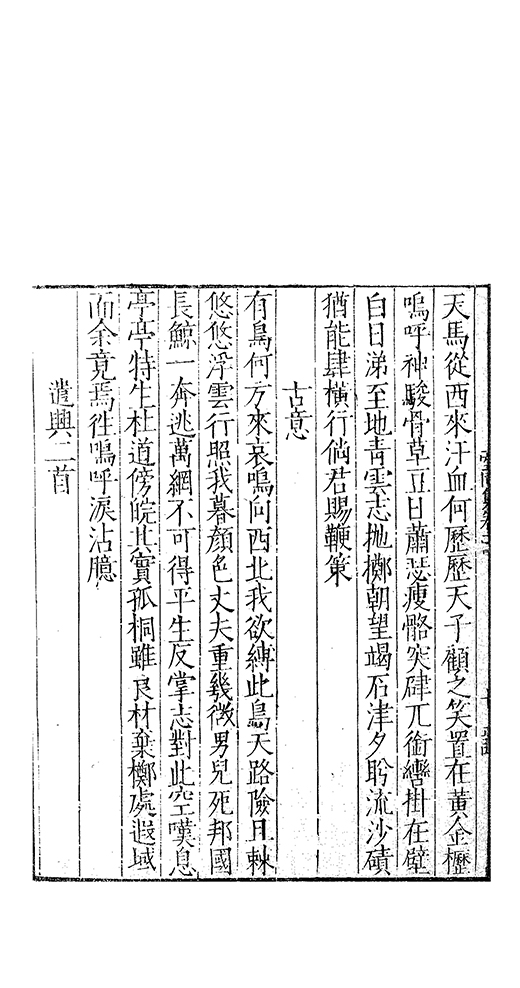 天馬從西來汗血何歷歷天子顧之笑置在黃金櫪
嗚呼神駿骨草豆日蕭瑟瘦骼突硉兀銜轡掛在壁
白日涕至地青雲志拋擲朝望竭石津夕盻流沙磧
猶能肆橫行倘君賜鞭策
古意
有鳥何方來哀鳴向西北我欲縛此鳥天路險且棘
悠悠浮雲行照我暮顏色丈夫重幾微男兒死邦國
長鯨一奔逃萬網不可得平生反掌志對此空嘆息
亭亭特生杜道傍皖其實孤桐雖良材棄擲處遐域
而余竟焉往嗚呼淚沾臆
遣興二首